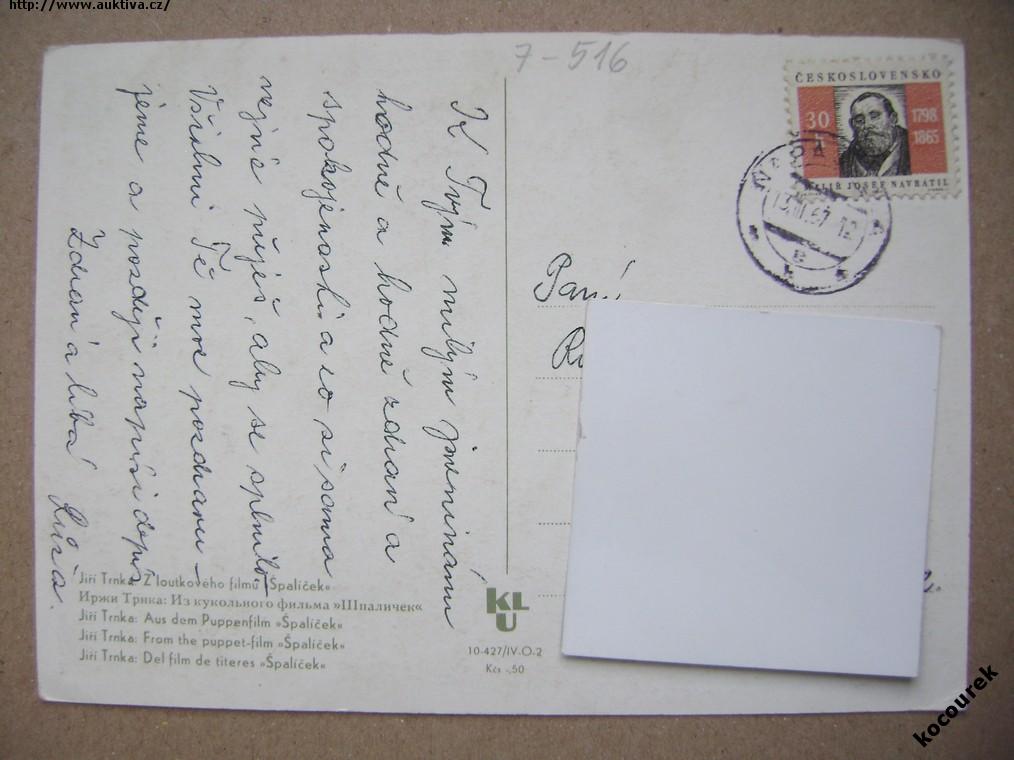 http://www.auktiva.cz/
7-516
ČESKOSLOVENSKO
30 h
1798
1865
MALÍŘ JOSEF NAVRÁTIL
13.III.67-12
K Tvým milým jmeninám
hodně a hodně zdraví a
spokojenosti a co si sama
nejvíc přeješ, aby se splnilo.
Všichni Tě moc pozdravu-
jeme a později napíši dopis
Zdraví a líbá Růža.
Paní
Jiří Trnka: Z loutkového filmu »Špalíček«
Иржи Трнка: Из кукольного фильма »Шпаличек«
Jiří Trnka: Aus dem Puppenfilm »Špalíček«
Jiří Trnka: From the puppet-film »Špalíček«
Jiří Trnka: Del film de titeres »Špalíček«
KLU
10-427/IV.O.2
Kčs -,50
kocourek